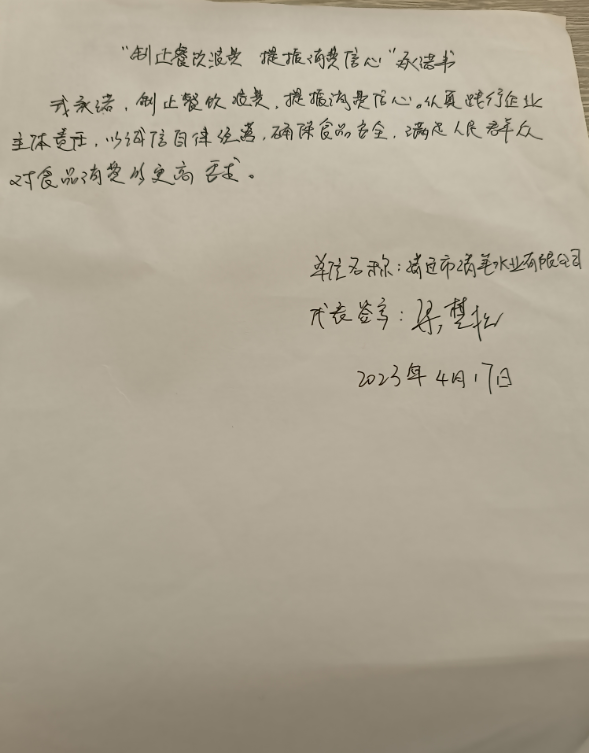 “制止餐饮浪费 提振消费信心”承诺书
我承诺，制止餐饮浪费，提振消费信心。认真践行企业
主体责任，以诚信自律经营，确保食品安全，满足人民群众
对食品消费的更高需求。
单位名称：市清羊水业有限公司
代表签字：梁楚松
2023年4月17日